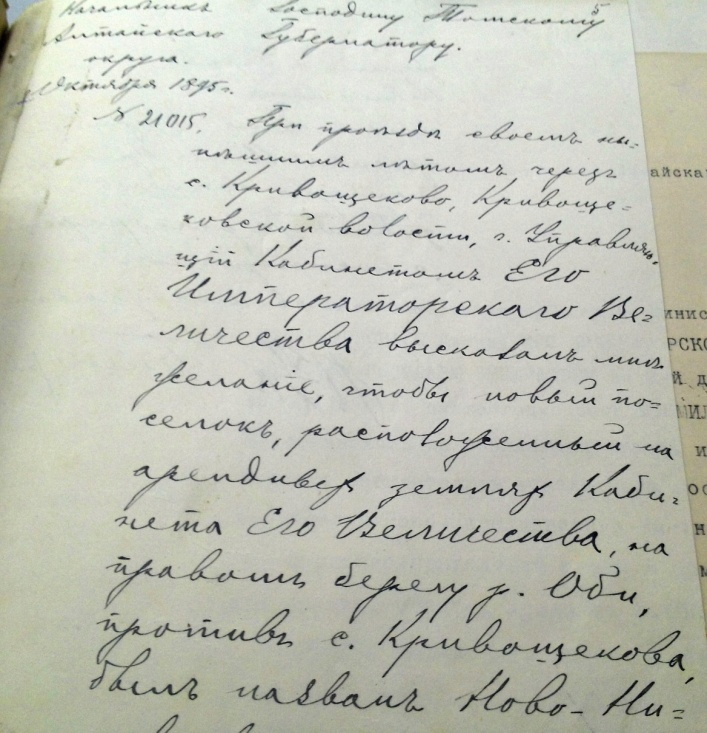 Начальникъ Господину Томскому 5
Алтайскаго Губернатору.
округа.
Октября 1895 г.
№ 21015. При проѣздѣ своемъ ны-
нѣшнимъ лѣтомъ черезъ
с. Кривощеково, Кривоще-
ковской волости, г. Управляю-
щій Кабинетомъ Его
Императорскаго Ве-
личества высказалъ мнѣ
желаніе, чтобы новый по-
селокъ, расположенный на
арендныхъ земляхъ Каби-
нета Его Величества, на
правомъ берегу р. Оби,
противъ с. Кривощекова,
былъ названъ Ново-Ни-
айска
инис
РСКО
й д
МИЛ
и
ос
н
м